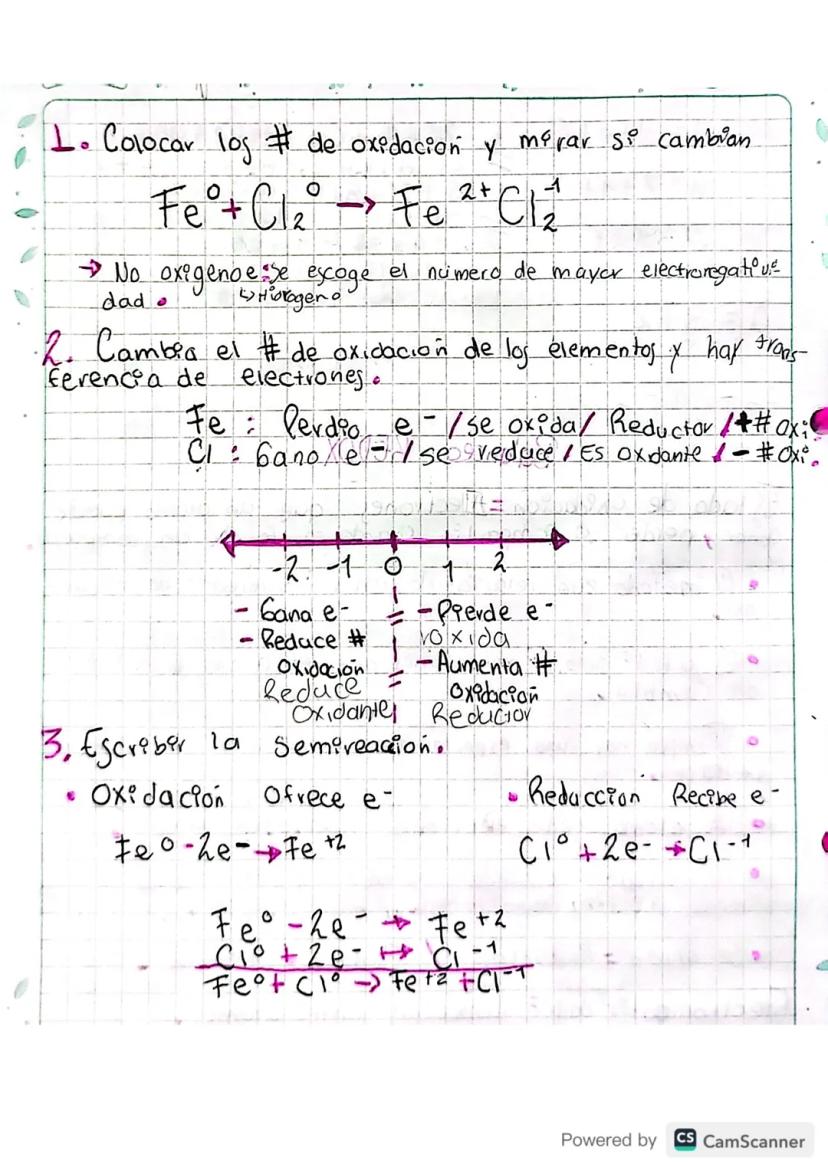 1. Colocar los # de oxidación y mirar si cambian
Fe⁰ + Cl₂⁰ → Fe²⁺ Cl₂⁻¹
→ No oxigeno e: se escoge el número de mayor electronegativi-
dad. ↳ Hidrogeno
2. Cambia el # de oxidación de los elementos y hay trans-
ferencia de electrones.
Fe : Perdio e⁻ / se oxida / Reductor / +# oxi.
Cl : Gano e⁻ / se reduce / Es oxdante / - # oxi.
-2 -1 0 1 2
- Gana e- - Pierde e-
- Reduce # oxida
oxidación - Aumenta #
Reduce oxidación
Oxidante Reductor
3. Escribir la semireacción.
• Oxidación Ofrece e- • Reducción Recibe e-
Fe⁰ - 2e- → Fe⁺² Cl⁰ + 2e- → Cl⁻¹
Fe⁰ - 2e⁻ → Fe⁺²
Cl⁰ + 2e⁻ → Cl⁻¹
Fe⁰ + Cl⁰ → Fe⁺² + Cl⁻¹
Powered by CS CamScanner